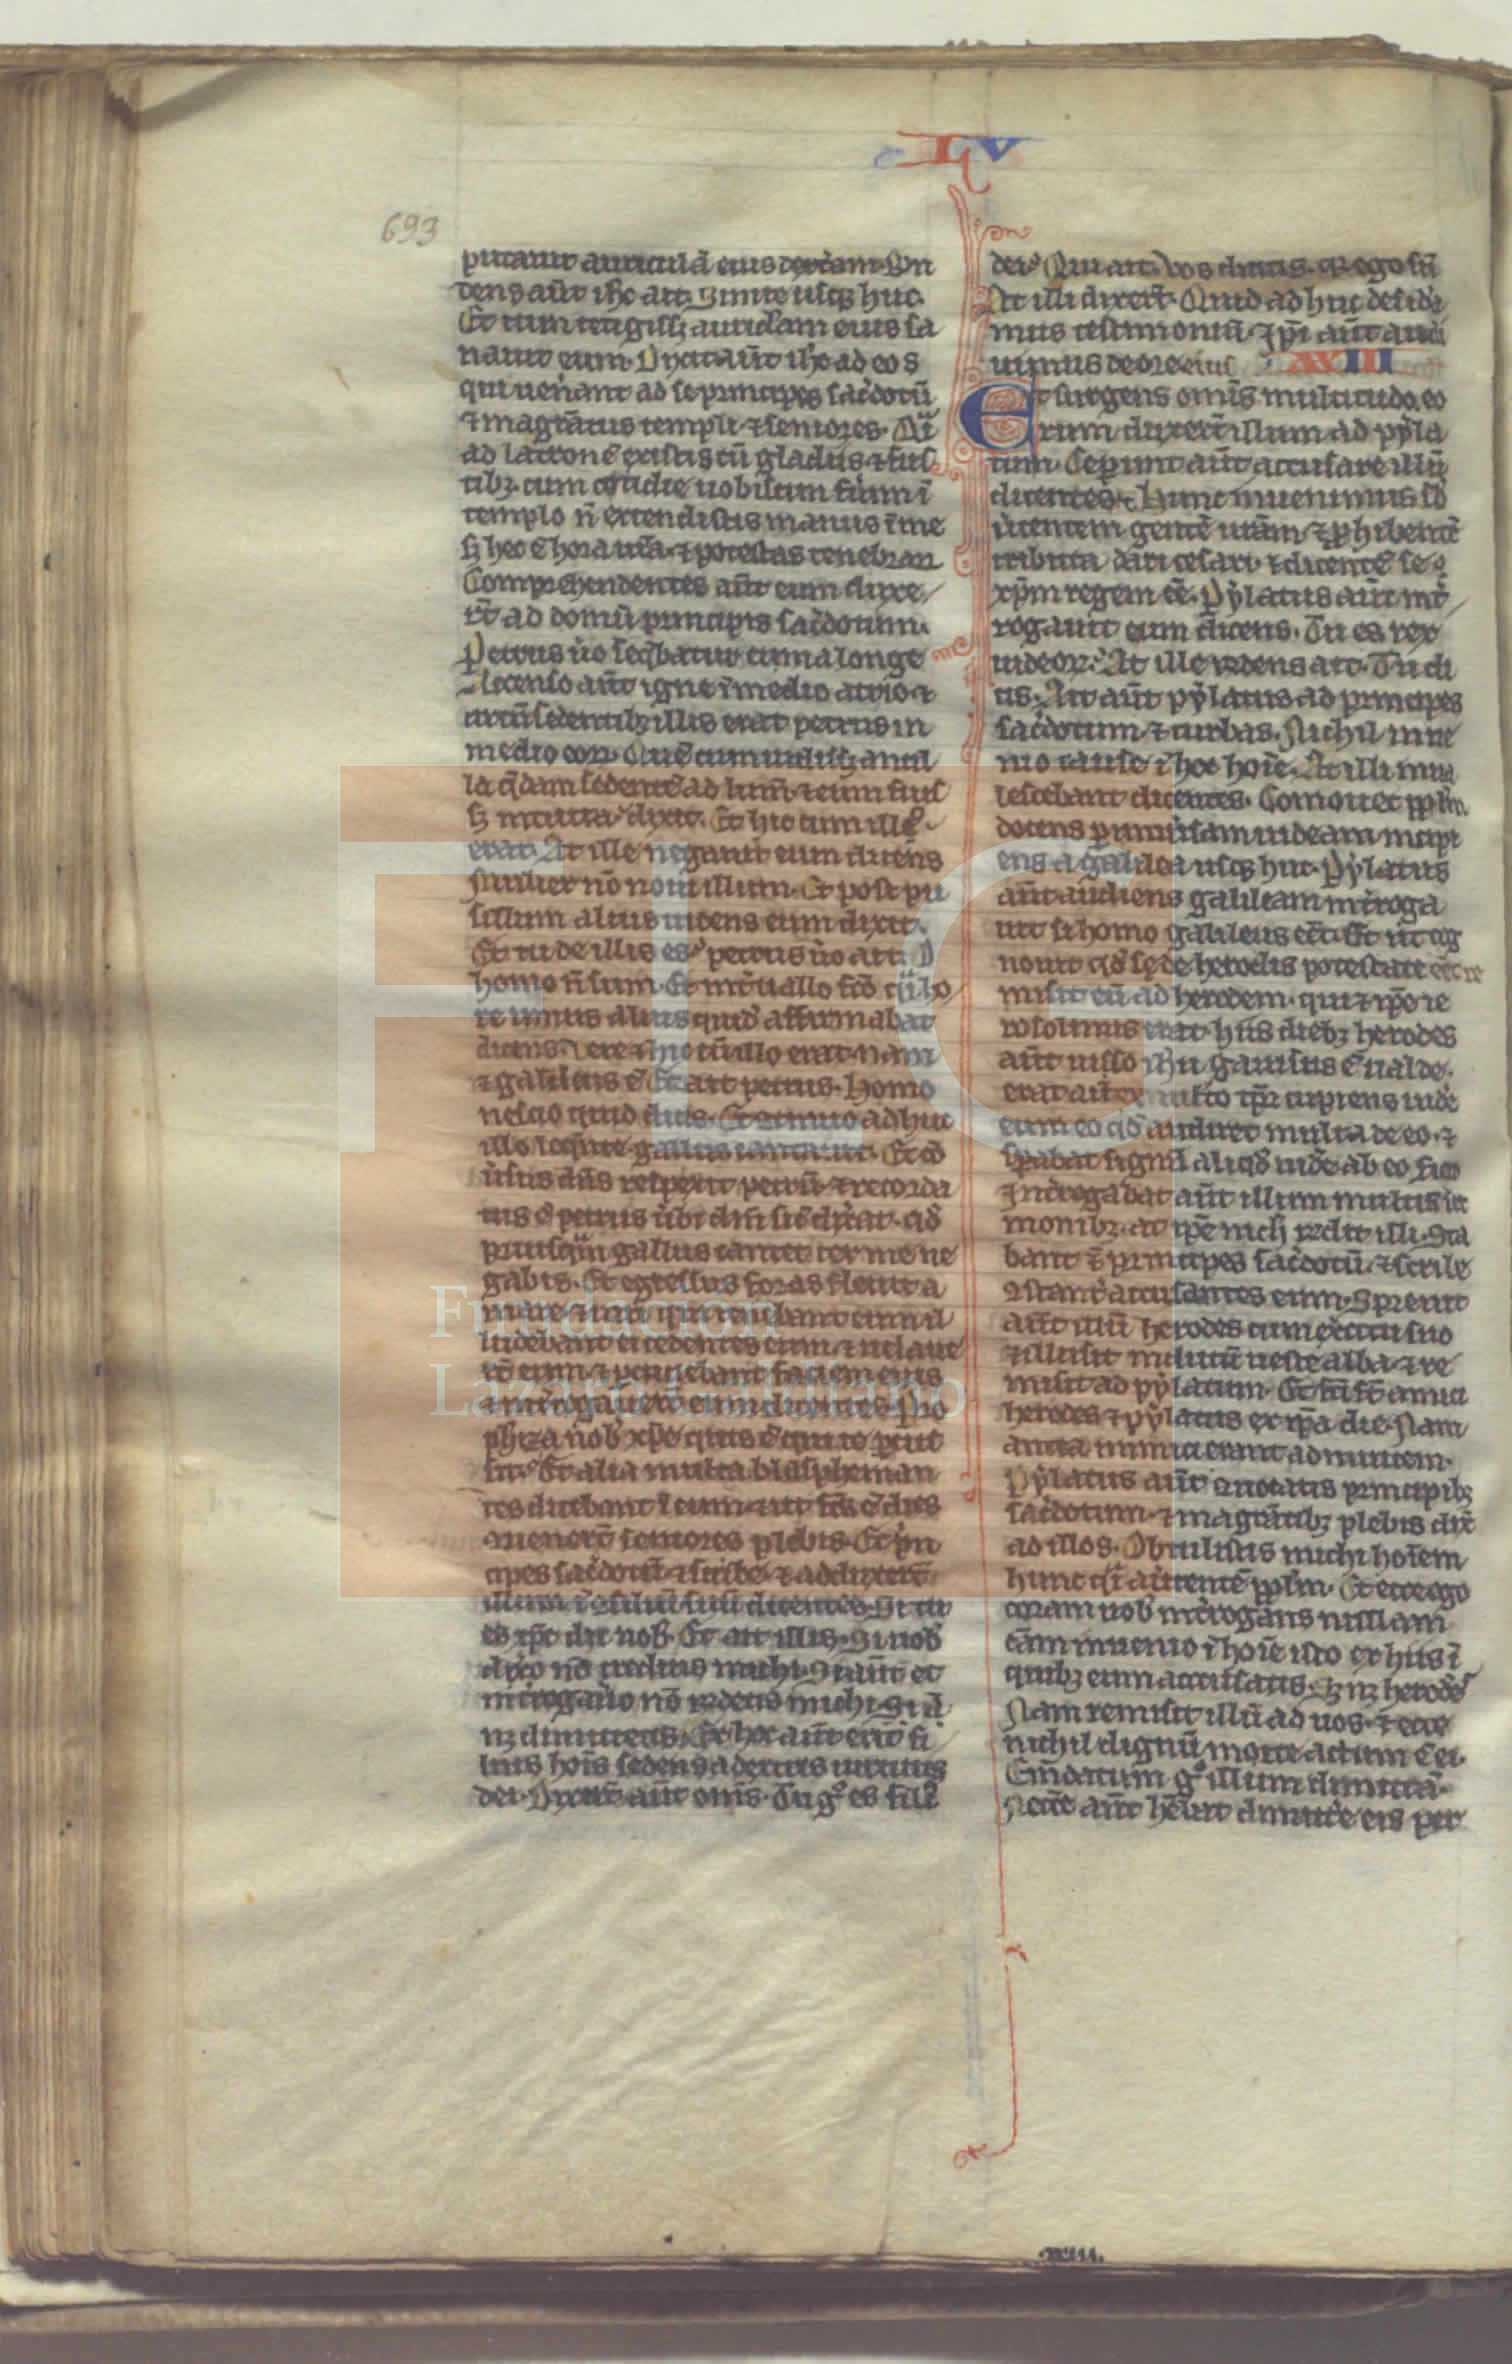 LV
693
putauit auriculā eius dextam. Rn
dens aūt ihc ait. Sinite usqꝫ huc.
Et cum tetigissꝫ auriclam eius sa
nauit eum. Dixit aūt ihc ad eos
qui uen̄ant ad se principes sac̄dotū
⁊ magr̄atus templi ⁊ seniores. Q̄i
ad latronē existis cū gladiis ⁊ fus
tibꝫ. cum cotidie uobiscum fūim ī
templo n̄ extendistis manus ī me
sꝫ hec ē hora ur̄a. ⁊ potestas tenebraꝝ
Comprehendentes aūt eum duxe
rt̄ ad domū principis sac̄dotum.
Petrus ůo seq̄batur eum a longe
Accenso aūt igne ī medio atrio ⁊
circūsedentibꝫ illis erat petrus in
medio eoꝝ. Quē cum uidissꝫ ancil
la q̄dam sedentē ad lum̄. ⁊ eum fuis
sꝫ intuita dixit. Et hic cum illo
erat. At ille negauit eum dicens
Mulier nō noui illum. Et post pu
sillum alius uidens eum dixit.
Et tu de illis es. petrus ůo ait. O
homo n̄ sum. Et int̄uallo fc̄o q̄i ho
re unius alius quid̄ affirmabat
dicens. Vere ⁊ hic cū illo erat. nam
⁊ galileus ē. Et ait petrus. Homo
nescio quid dicis. Et 9tinuo adhuc
illo loq̄nte gallus cantauit. Et 9
ůsus dn̄s respexit petrū. ⁊ recorda
tus ē petrus ůbi dn̄i sic̄ dix̄at. qd̄
priusq̄m gallus cantet ter me ne
gabis. Et egressus foras fleuit a
mare ⁊ uiri qui tenebant eum il
ludebant ei cedentes eum. ⁊ uelaue
rt̄ eum. ⁊ percutiebant faciem eius
⁊ int̄rogauert̄ eum dicentes. Pro
phiza nob̄ xp̄e quis ē qui te ꝑcus
sit. Et alia multa blaspheman
tes dicebant ī eum. ⁊ ut fc̄s ē dies
9uenert̄ seniores plebis. Et p̄n
cipes sac̄dotū. ⁊ scribe. ⁊ adduxert̄
illum ī 9siliū suū dicentes. Si tu
es xp̄c dic nob̄. Et ait illis. Si uob̄
dix̄o nō creditis michi. Si aūt et
int̄rogau̇o nō r̄ndetis michi. Si ů
nꝫ dimittetis. Ex hoc aūt erit fi
lius hoīs sedens a dextris uirtutis
dei. Dixert̄ aūt om̄s. Tu gͦ es filiꝰ
dei. Qui ait. Vos dicitis. qꝛ ego sū
At illi dixert̄. Quid adhuc desid̄a
mus testimoniū. Ip̄i aūt audi
uimus de ore eius XXIII
Et surgens om̄s multitudo eo
rum duxert̄ illum ad pyla
tum. Ceperunt aūt accusare illū
dicentes. Hunc inuenimus sb̄
ůtentem gentē nr̄am. ⁊ ꝓhibentē
tributa dari cesari. ⁊ dicentē se
xp̄m regem eē. Pylatus aūt int̄
rogauit eum dicens. Tu es rex
iudeoꝝ. At ille r̄ndens ait. Tu di
cis. Ait aūt pylatus ad principes
sac̄dotum ⁊ turbas. Nichil inue
nio cause ī hoc hoīe. At illi inua
lescebant dicentes. Comouet pp̄lm.
docens ꝑ uniůsam iudeam incipi
ens a galilea usqꝫ huc. Pylatus
aūt audiens galileam int̄roga
uit si homo galileus eēt. Et ut cog
nouit qd̄ de herodis potestate eēt re
misit eū ad herodem. qui ⁊ ip̄e ie
rosolimis erat. hiis diebꝫ herodes
aūt uiso ihu gauisus ē ualde.
erat aūt ex multo tp̄r cupiens uid̄e
eum eo qd̄ audiret multa de eo. ⁊
sp̄abat signū aliqd̄ uid̄e ab eo fieri
Int̄rogabat aūt illum multis ser
monibꝫ. at ip̄e nich̄ r̄ndit illi. Sta
bant ē principes sac̄dotū ⁊ scribe
9stant̄ accusantes eum. Spreuit
aūt illū herodes cum ex̄citu suo
⁊ illusit indutū ueste alba. ⁊ re
misit ad pylatum. Et fc̄i st̄ amici
herodes ⁊ pylatus ex ip̄a die. Nam
antea inimici erant adinuicem.
Pylatus aūt 9uocatis principibꝫ
sac̄dotum. ⁊ magr̄atibꝫ plebis dix̄
ad illos. Obtulistis michi hoīem
hunc q̄i aůtentē pp̄lm. Et ecce ego
coram uob̄ int̄rogans nullam
cām inuenio ī hoīe isto ex hiis ī
quibꝫ eum accusatis. Sꝫ nꝫ herodes
Nam remisit illū ad uos. ⁊ ecce
nichil dignū morte actum ē ei.
Em̄datum gͦ illum dimittā.
Necc̄e aūt hēbat dimitt̄e eis per